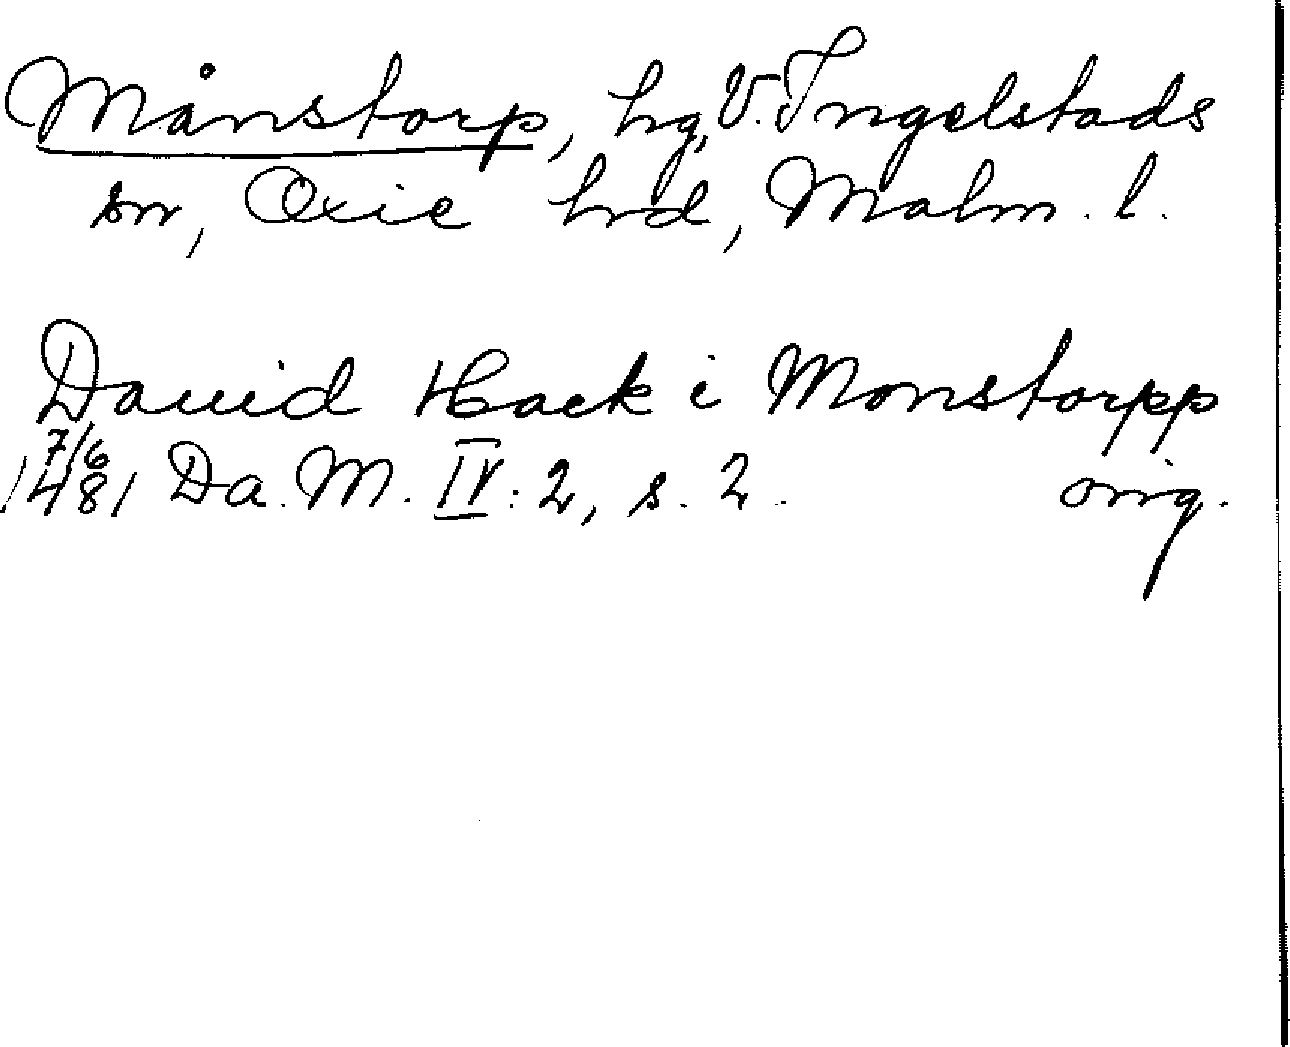 Månstorp, hg, V. Ingelstads
sn, Oxie hrd, Malm. l.
Dauid Hack i Monstorpp
7/6
1481 Da. M. IV: 2, s. 2. orig.